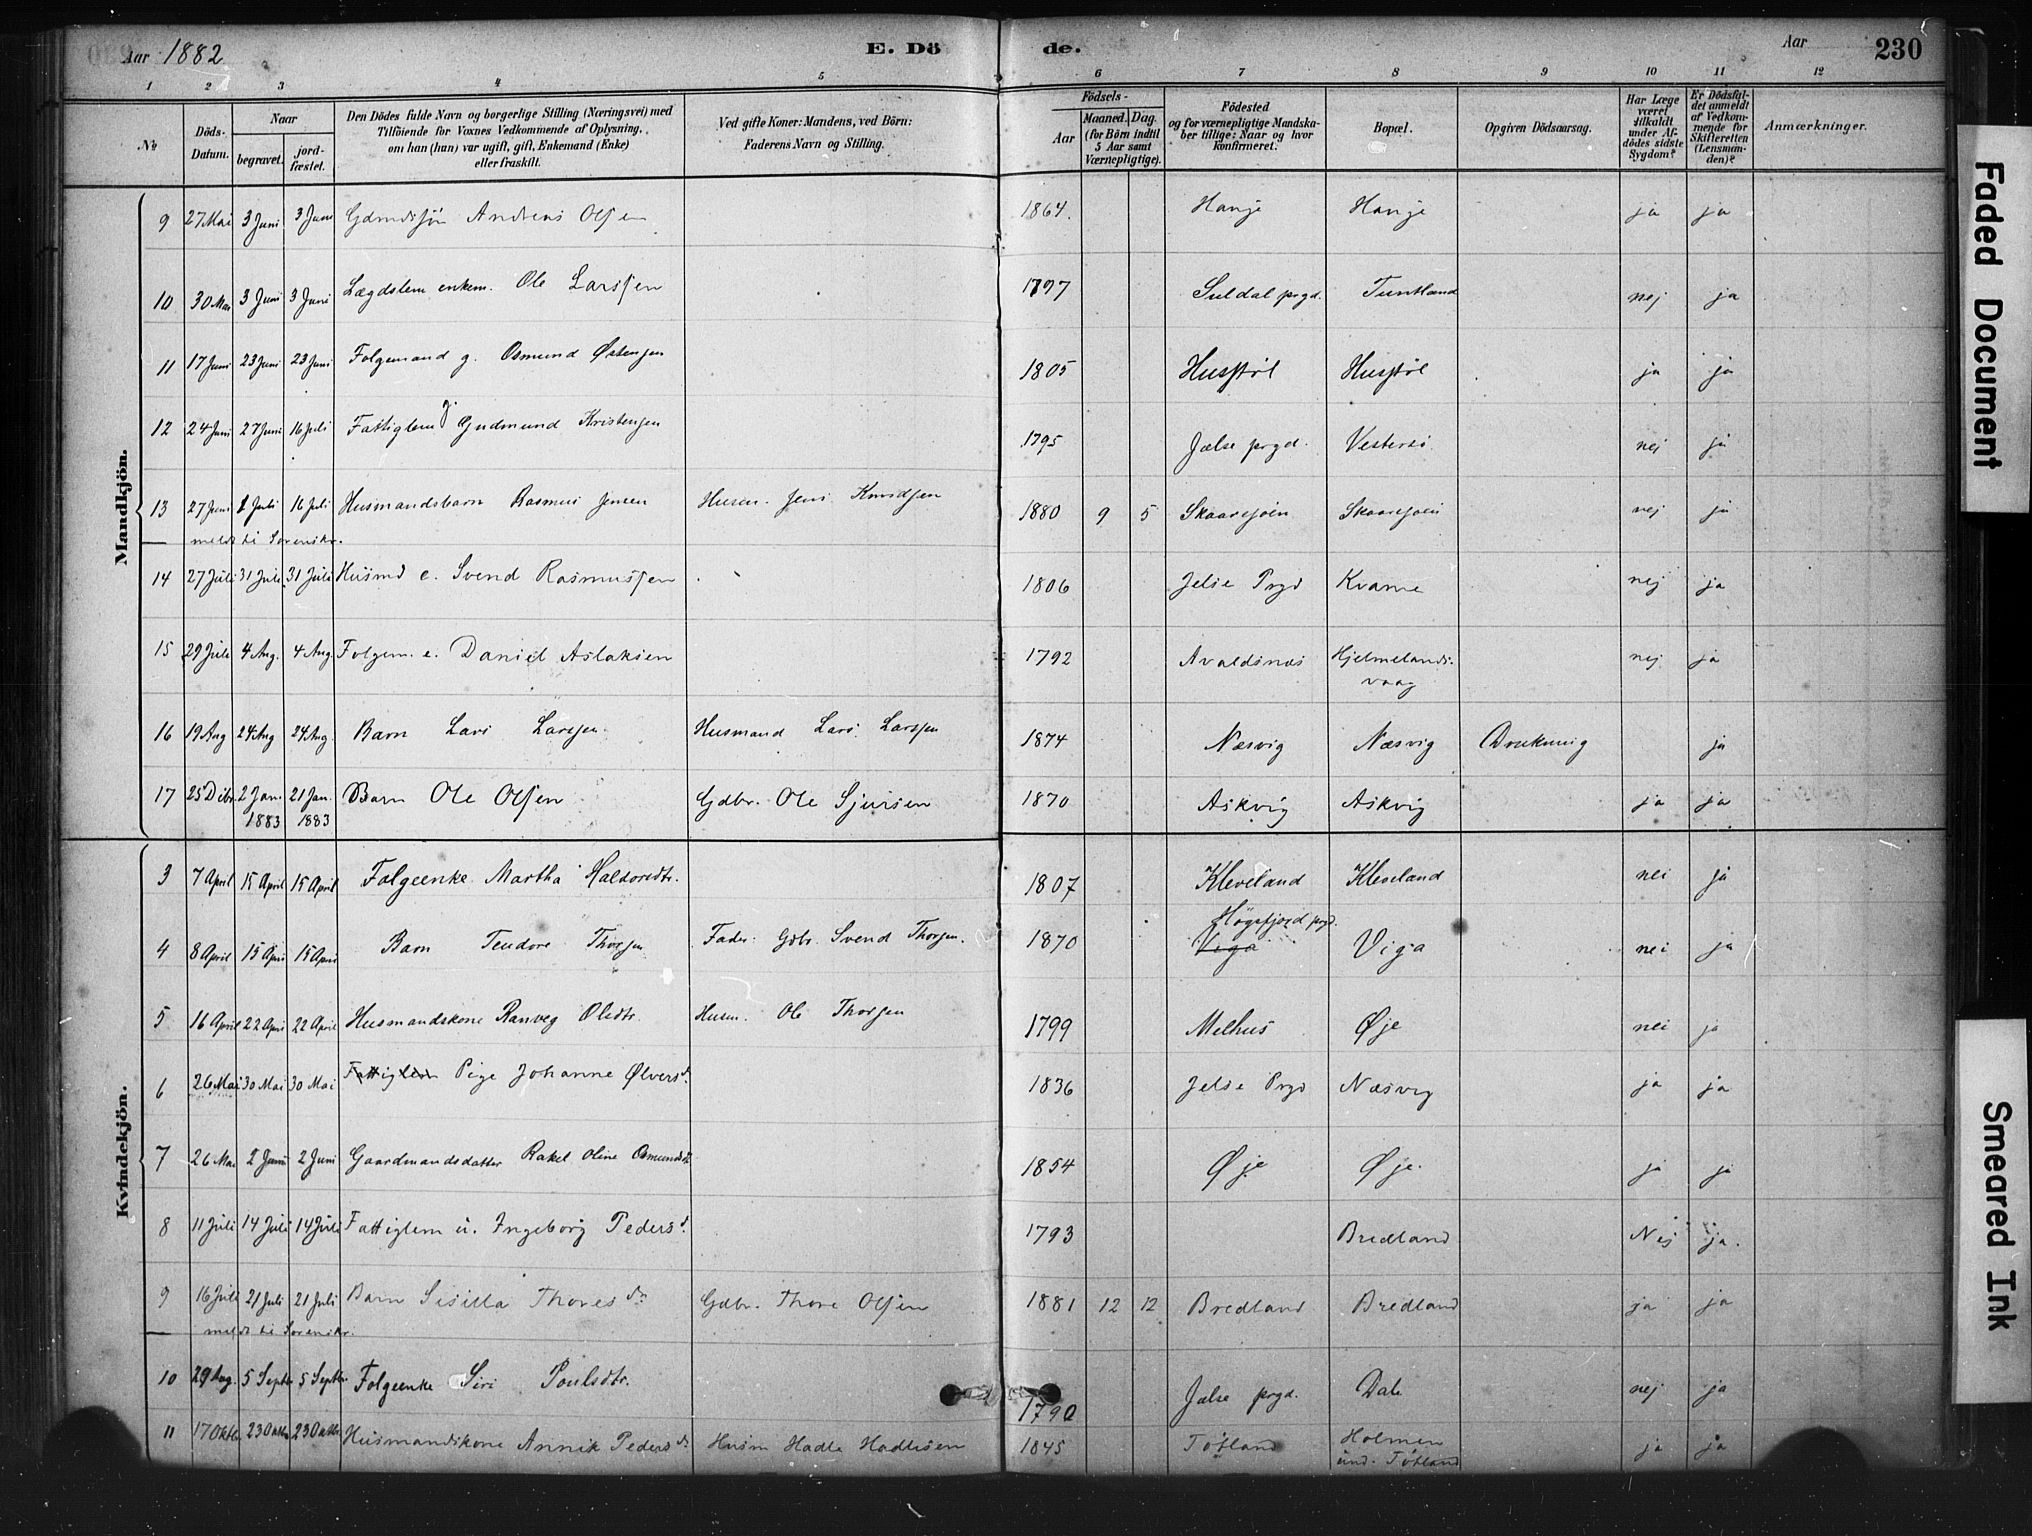 Aar 1882 E. Dö de. Aar 230
1 2 3 4 5 6 7 8 9 10 11 12
№ Döds-Datum. Naar begravet. jord-fæstet. Den Dödes fulde Navn og borgerlige Stilling (Næringsvei) med Tilföiende for Voxnes Vedkommende af Oplysning, om han (hun) var ugift, gift, Enkemand (Enke) eller fraskilt. Ved gifte Koner: Mandens, ved Börn: Faderens Navn og Stilling. Födsels- Aar Maaned. Dag. (for Börn indtil 5 Aar samt Værnepligtige). Födested og for værnepligtige Mandska-ber tillige: Naar og hvor konfirmeret. Bopæl. Opgiven Dödsaarsag. Har Læge været tilkaldt under Af-dödes sidste Sygdom? Er Dödsfal-det anmeldt af Vedkom-mende for Skifteretten (Lensman-den)? Anmærkninger.
Mandkjön.
9 27 Mai 3 Juni 3 Juni Gdmdssøn Andreas Olsen 1864. Hauje Hauje ja ja
10 30 Mai 3 Juni 3 Juni Lægdslem enkem. Ole Larssen 1797 Suldal prgd. Tuntland nej ja
11 17 Juni 23 Juni 23 Juni Folgemand g. Osmund Østensen 1805 Husstøl Husstøl ja ja
12 24 Juni 27 Juni 16 Juli Fattiglem g Gudmund Kristensen 1795 Jælse prgd. Vestersø nej ja
13 27 Juni 1 Juli 16 Juli Husmandsbarn Rasmus Jensen Husm. Jens Knudsen 1880 9 5 Skaaresøen Skaaresøen nej ja
— meldt til Sorenskr.
14 27 Juli 31 Juli 31 Juli Husmd e. Svend Rasmussen 1806 Jelse Prgd Kvame nej ja
15 29 Juli 4 Aug. 4 Aug. Folgem. e. Daniel Aslaksen 1792 Avaldsnæs Hjelmelands-vaag nej ja
16 19 Aug 24 Aug 24 Aug. Barn Lars Larssen Husmand Lars Larssen 1874 Næsvig Næsvig Drukning ja
17 25 Dcbr. 2 Jan. 1883 21 Jan. 1883 Barn Ole Olsen Gdbr. Ole Sjursen 1870 Askvig Askvig ja ja
Kvindekjön.
3 7 April 15 April 15 April Folgeenke Martha Haldorsdtr. 1807 Kleveland Kleveland nei ja
4 8 April 15 April 15 April Barn Teudore Thorsen Fader: Gdbr. Svend Thorsen. 1870 Høgsfjord prgd. Viga Viga nei ja
5 16 April 22 April 22 April Husmandskone Ranveg Olsdtr. Husm. Ole Thorsen 1799 Melhus Øje nei ja
6 26 Mai 30 Mai 30 Mai Fattiglem Pige Johanne Ølversd. 1836 Jelse Prgd Næsvig ja ja
7 26 Mai 2 Juni 2 Juni Gaardmandsdatter Rakel Oline Osmundsdt. 1854 Øje Øje. ja ja
8 11 Juli 14 Juli 14 Juli Fattiglem u. Ingeborg Pedersd. 1793 Bredland Nej ja.
9 16 Juli 21 Juli 21 Juli Barn Sisilla Thoresdr. Gdbr. Thore Olsen 1881 12 12 Bredland Bredland ja ja
— meldt til Sorenskr.
10 29 Aug. 5 Septbr 5 Septbr Folgeenke Siri Poulsdtr. 1790 Jælse prgd. Dale nej ja
11 17 Oktbr. 23 Oktbr 23 Oktbr. Husmandskone Annik Pedersdr. Husm Hadle Hadlesen 1845 Tøtland Holmen und. Tøtland ja ja
Faded Document
Smeared Ink